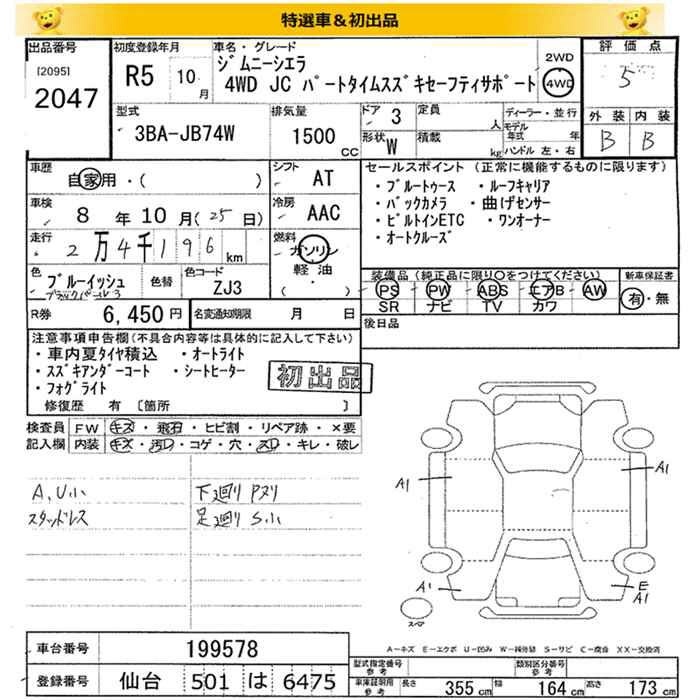 特選車＆初出品
出品番号
[2095]
2047
初度登録年月
R5 10月
車名・グレード
ジムニーシエラ
4WD JC パートタイムスズキセーフティサポート
2WD
4WD
評価点
5
型式
3BA-JB74W
排気量
1500 CC
ドア 3
形状 W
定員 人
積載 kg
ディーラー・並行
モデル年式 年
ハンドル 左・右
外装 内装
B B
車歴
自家用・( )
シフト
AT
車検
8年10月(25日)
冷房
AAC
走行
2万4千196km
燃料
ガソリン
軽油
( ・ )
色
ブルーイッシュ
ブラックパール3
色替
色コード
ZJ3
R券 6,450円
名変通知期限 月 日
セールスポイント (正常に機能するものに限ります)
・ブルートゥース ・ルーフキャリア
・バックカメラ ・曲げセンサー
・ビルトインETC ・ワンオーナー
・オートクルーズ
装備品(純正品に限り○をつけてください)
PS PW ABS エアB AW
SR ナビ TV カワ
新車保証書
有・無
後日品
注意事項申告欄(不具合内容等は具体的に記入して下さい)
・車内夏タイヤ積込 ・オートライト
・スズキアンダーコート ・シートヒーター
・フォグライト
初出品
修復歴 有 [箇所 ]
検査員 FW キズ・飛石・ヒビ割・リペア跡・×要
記入欄 内装 キズ・汚レ・コゲ・穴・スレ・キレ・破レ
A,U小 下廻りPヌリ
スタッドレス 足廻りS小
A1
A1
A1
E
A1
スペア
A-キズ E-エクボ U-凹み W-補修跡 S-サビ C-腐食 XX-交換済
車台番号 199578
登録番号 仙台 501 は 6475
型式指定番号
参考
類別区分番号
参考
車庫証明用
参考
長さ 355cm 幅 164cm 高さ 173cm